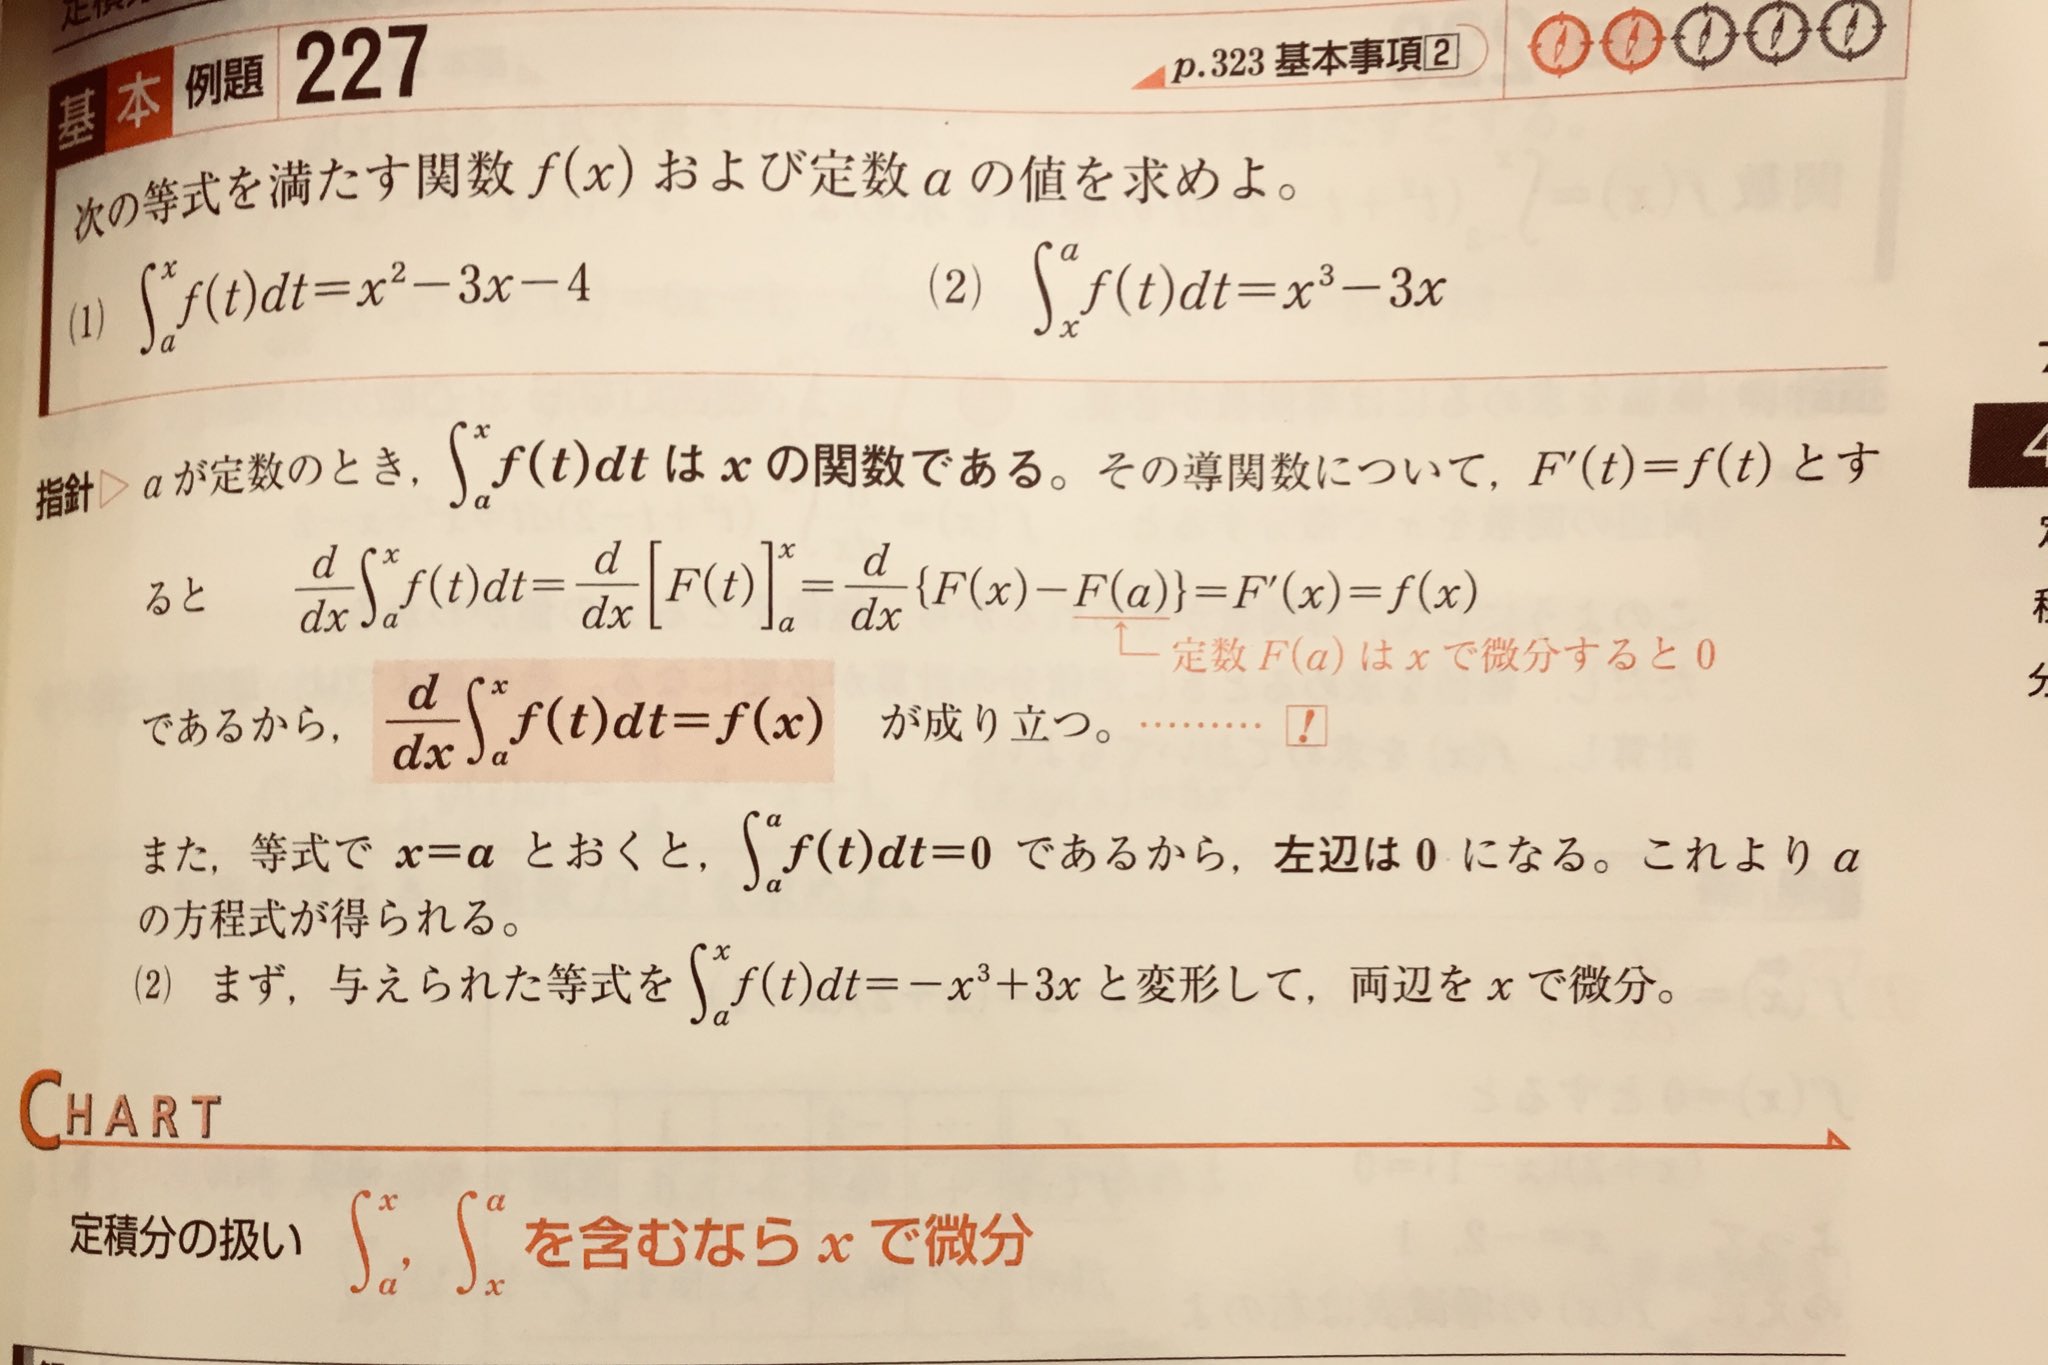 基本 例題 227 p.323 基本事項 2
次の等式を満たす関数 f(x) および定数 a の値を求めよ。
(1) ∫_a^x f(t)dt=x²−3x−4 (2) ∫_x^a f(t)dt=x³−3x
指針▷ a が定数のとき, ∫_a^x f(t)dt は x の関数である。その導関数について, F′(t)=f(t) とす
ると d/dx ∫_a^x f(t)dt= d/dx [F(t)]_a^x = d/dx {F(x)−F(a)}=F′(x)=f(x)
定数 F(a) は x で微分すると 0
であるから, d/dx ∫_a^x f(t)dt=f(x) が成り立つ。……… !
また, 等式で x=a とおくと, ∫_a^a f(t)dt=0 であるから, 左辺は 0 になる。これより a
の方程式が得られる。
(2) まず, 与えられた等式を ∫_a^x f(t)dt=−x³+3x と変形して, 両辺を x で微分。
CHART
定積分の扱い ∫_a^x, ∫_x^a を含むなら x で微分